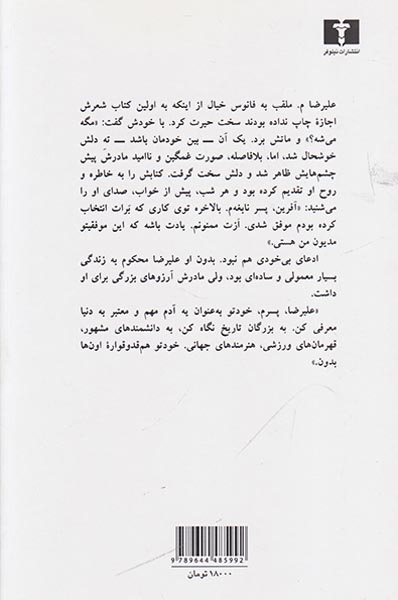 انتشارات نیلوفر
علیرضا م. ملقب به فانوس خیال از اینکه به اولین کتاب شعرش
اجازهٔ چاپ نداده بودند سخت حیرت کرد. با خودش گفت: «مگه
می‌شه؟» و ماتش برد. یک آن ــ بین خودمان باشد ــ ته دلش
خوشحال شد، اما، بلافاصله، صورت غمگین و ناامید مادرش پیش
چشم‌هایش ظاهر شد و دلش سخت گرفت. کتابش را به خاطره و
روح او تقدیم کرده بود و هر شب، پیش از خواب، صدای او را
می‌شنید: «آفرین، پسر نابغه‌م. بالاخره توی کاری که برات انتخاب
کرده بودم موفق شدی. اَزت ممنونم. یادت باشه که این موفقیتو
مدیون من هستی.»
ادعای بی‌خودی هم نبود. بدون او علیرضا محکوم به زندگی
بسیار معمولی و ساده‌ای بود، ولی مادرش آرزوهای بزرگی برای او
داشت.
«علیرضا، پسرم، خودتو به‌عنوان یه آدم مهم و معتبر به دنیا
معرفی کن. به بزرگان تاریخ نگاه کن، به دانشمندهای مشهور،
قهرمان‌های ورزشی، هنرمندهای جهانی. خودتو هم‌قدوقوارهٔ اون‌ها
بدون.»
9 789644 485992
۱۸۰۰۰ تومان